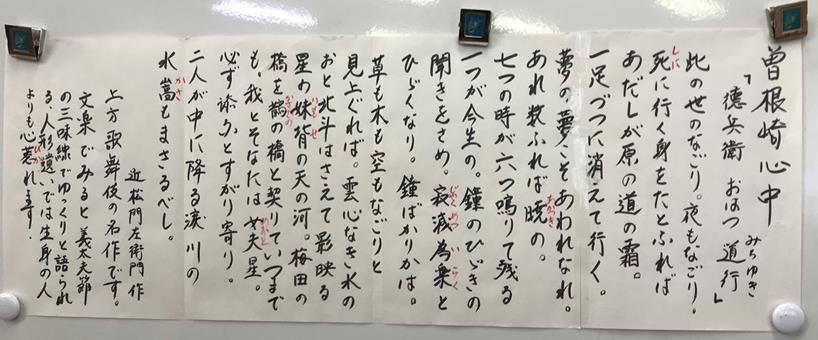 曽根崎心中
「徳兵衛 おはつ 道行」
みちゆき
此の世のなごり。夜もなごり。
死に行く身をたとふれば
しに
あだしが原の道の霜。
一足づつに消えて行く。
夢の夢こそあわれなれ。
あれ数ふれば暁の。
あかつき
七つの時が六つ鳴りて残る
一つが今生の。鐘のひゞきの
聞きをさめ。寂滅為楽と
じゃくめつ いらく
ひゞくなり。鐘ばかりかは。
草も木も空もなごりと
見上ぐれば。雲心なき水の
おと北斗はさえて影映る
星の妹背の天の河。梅田の
いもせ
橋を鵲の橋と契りていつまで
かささぎの
も、我とそなたは女夫星。
めおと
必ず添ふとすがり寄り。
二人が中に降る涙川の
水嵩もまさるべし。
かさ
近松門左衛門作
上方歌舞伎の名作です。
文楽でみると義太夫節
の三味線でゆっくりと語られ
る、人形遣いでは生身の人
よりも心惹れます。
ひか